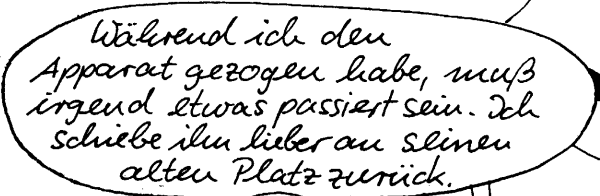 Während ich den
Apparat gezogen habe, muß
irgend etwas passiert sein. Ich
schiebe ihn lieber an seinen
alten Platz zurück.